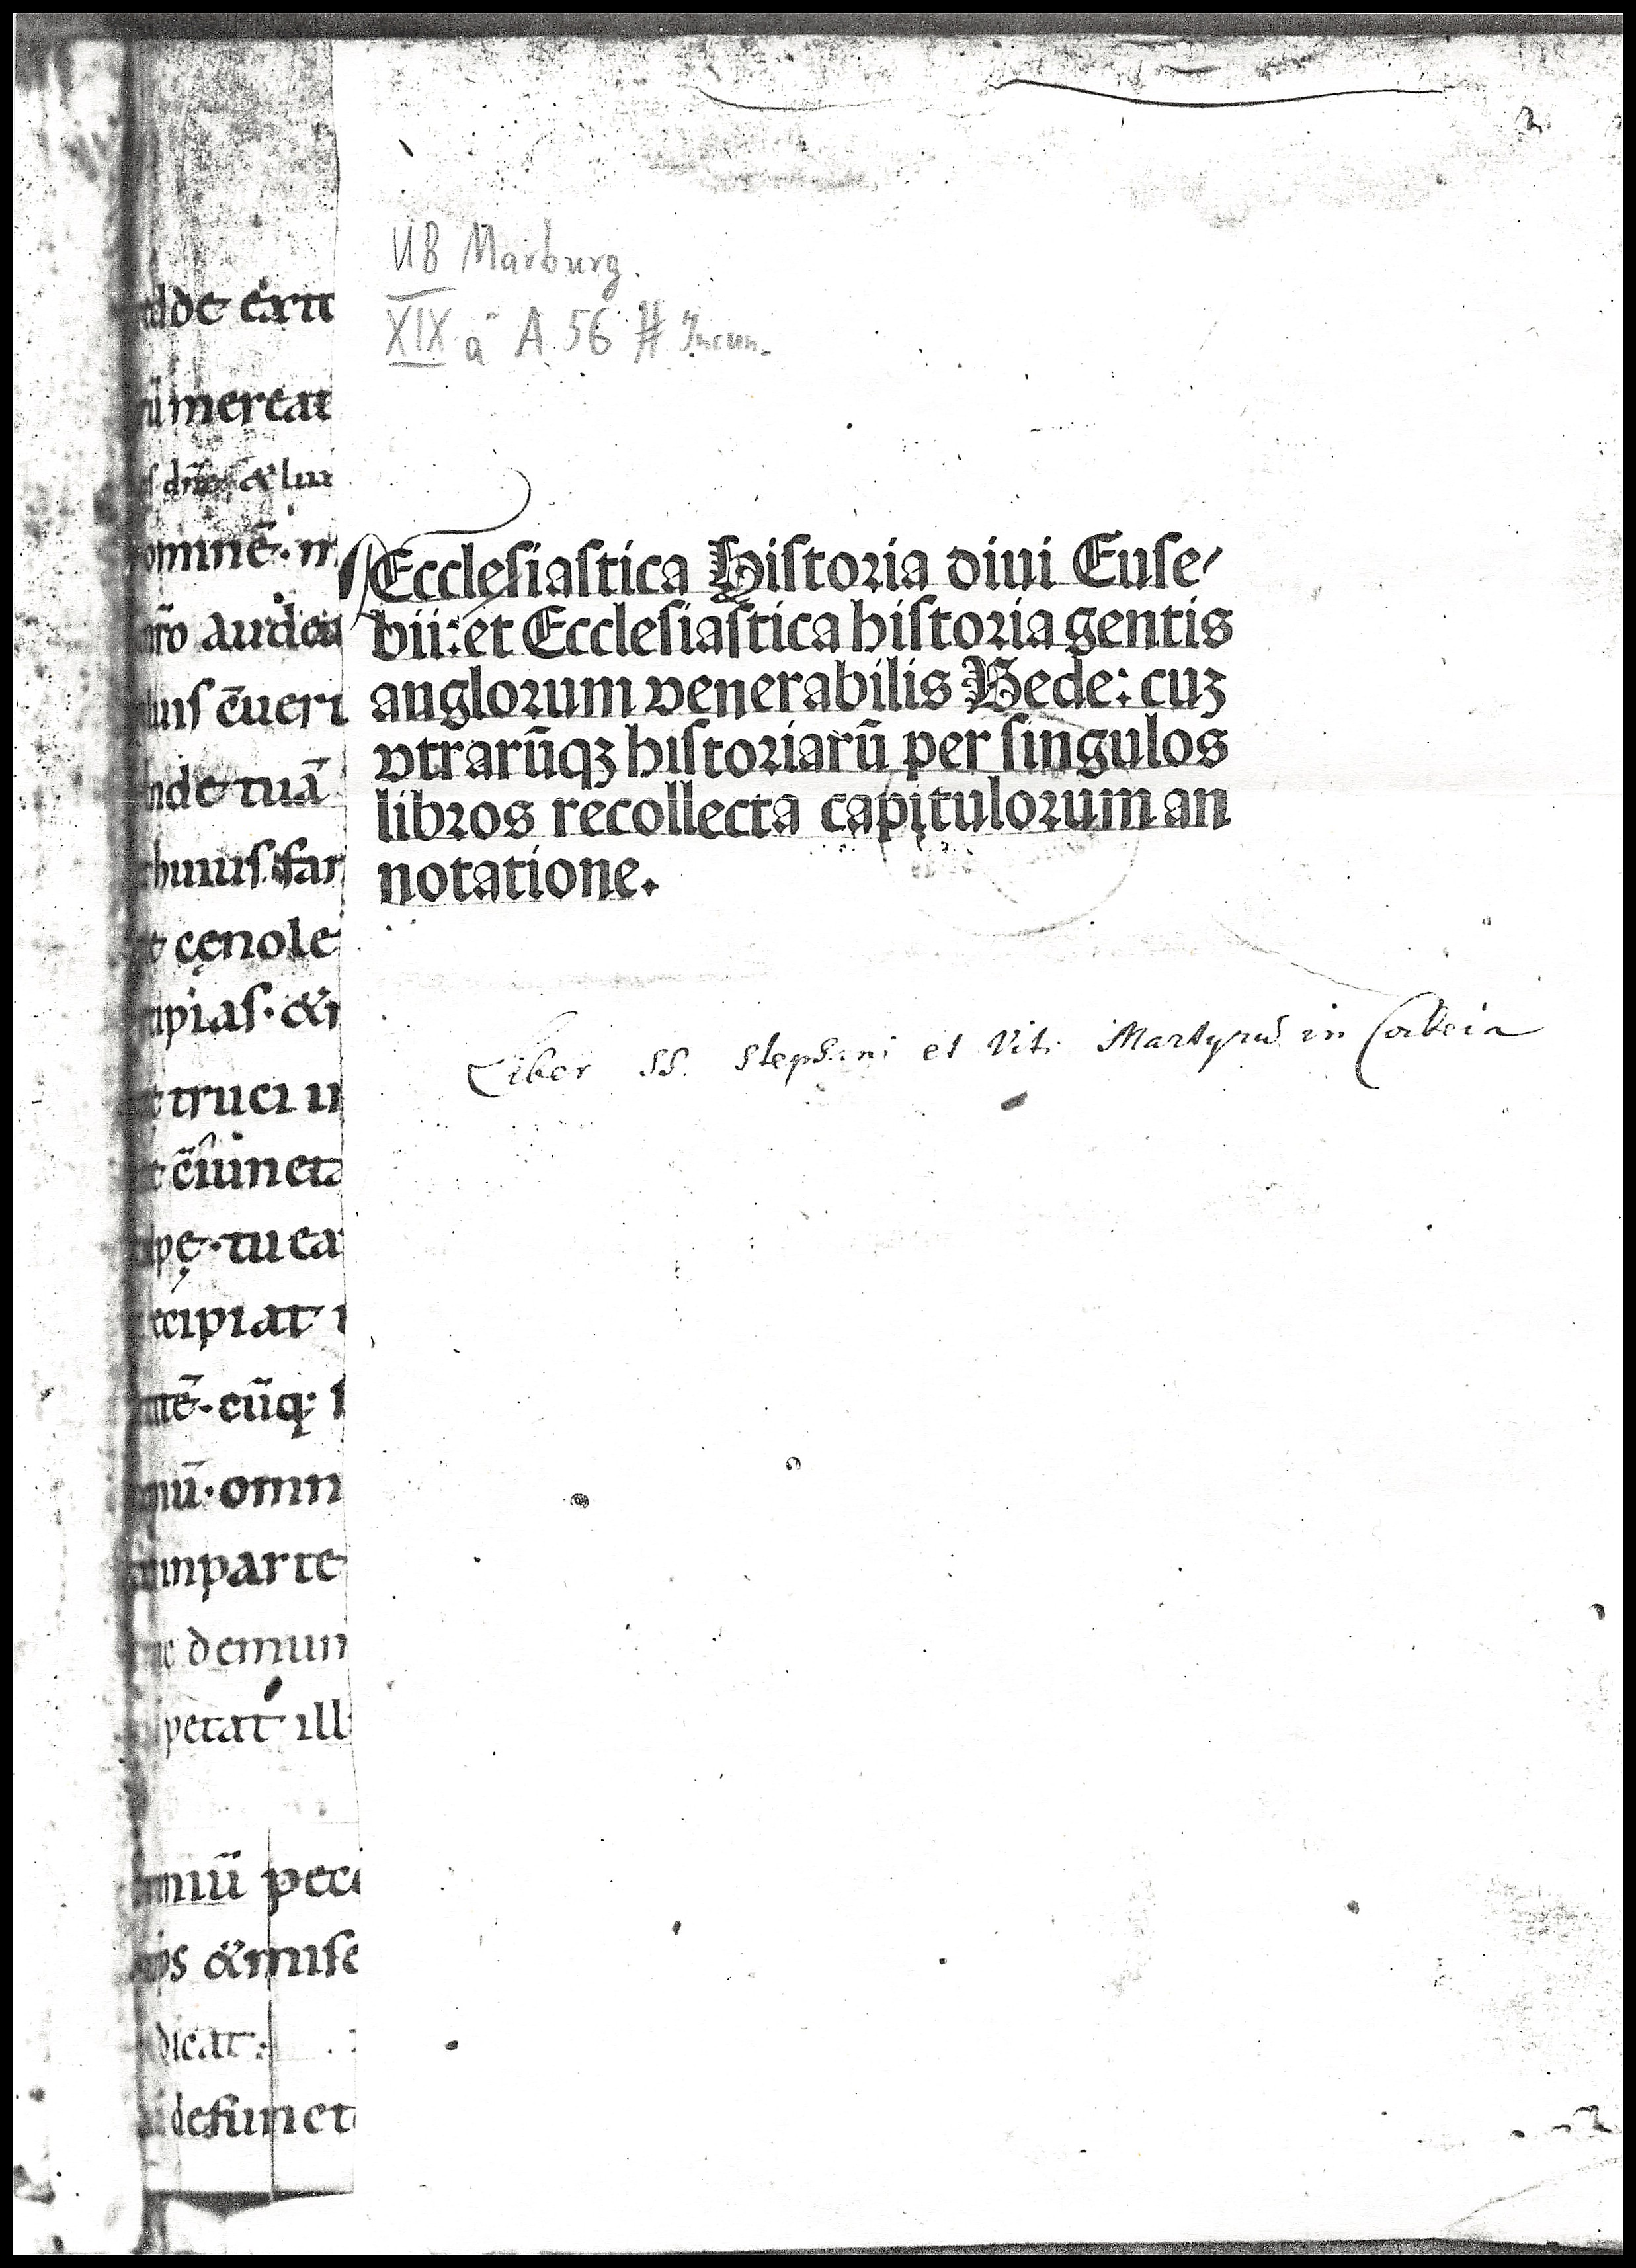 UB Marburg.
XIX a A 56 # Incun.
Eccleſiaſtica Hiſtoria diui Euſe⸗
bii: et Eccleſiaſtica hiſtoria gentis
anglorum venerabilis Bede: cuz
vtrarūqꝫ hiſtoriarū per ſingulos
libros recollecta capitulorum an
notatione.
Liber SS. Stephani et Viti Martyrū in Corbeia
mereat
omnē.
ēueri
nde tuā
huius.
cenole
pias. &
truci
pę. tu ea
cipiat
tē. cūq;
omn
inparte
demun
petat ill
niū pecc
& miſe
dicat.
defunct